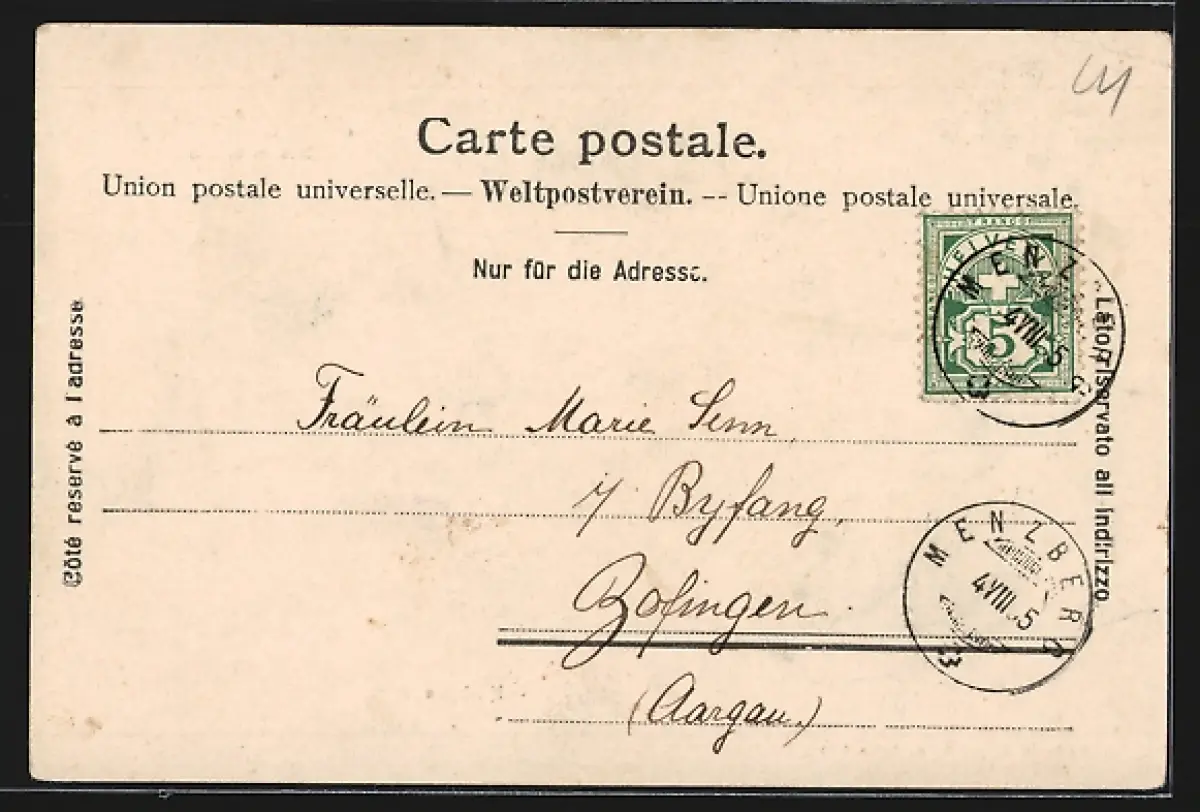 Carte postale.
Union postale universelle. — Weltpostverein. -- Unione postale universale.
Nur für die Adresse.
Côté réservé à l'adresse
Fräulein Marie Senn,
Byfang,
Zofingen.
(Aargau.)
FRANCO
HELVE
5
MENZ
4 VIII. 5
MENZBERG
4 VIII. 5
Lato riservato all indirizzo